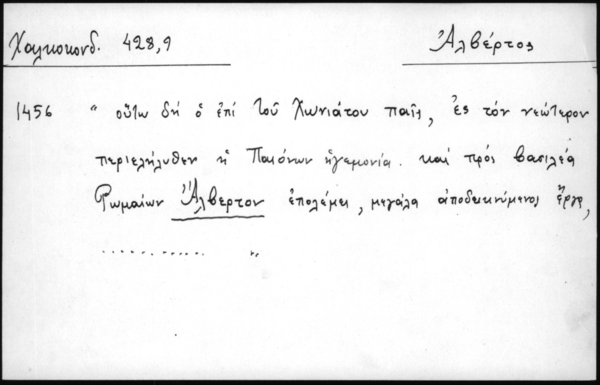 Χαλκοκονδ. 428,9
Ἀλβέρτος
1456 " οὕτω δή ὁ ἐπί τοῦ Χωνιάτου παῖς, ἐς τόν νεώτερον
περιελήλυθεν ἡ Παιόνων ἡγεμονία. καί πρός βασιλέα
Ρωμαίων Ἀλβερτον ἐπολέμει, μεγάλα ἀποδεικνύμενος ἔργα,
............ "